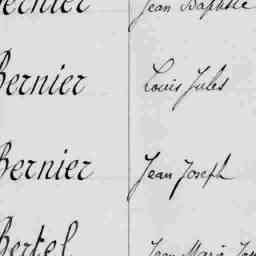 Bernier Jean Baptiste
Bernier Louis Jules
Bernier Jean Joseph
Bertel Jean Marie